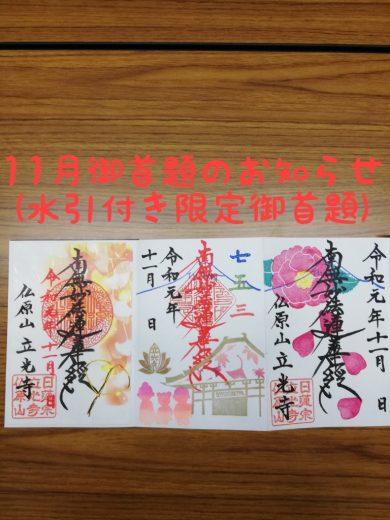 11月御首題のお知らせ
(水引付き限定御首題)
南無妙法蓮華経
令和元年十一月 日
仏原山 立光寺
七五三
南無妙法蓮華経
令和元年
十一月 日
南無妙法蓮華経
令和元年十一月 日
仏原山 立光寺
日蓮宗
立光寺
仏原山